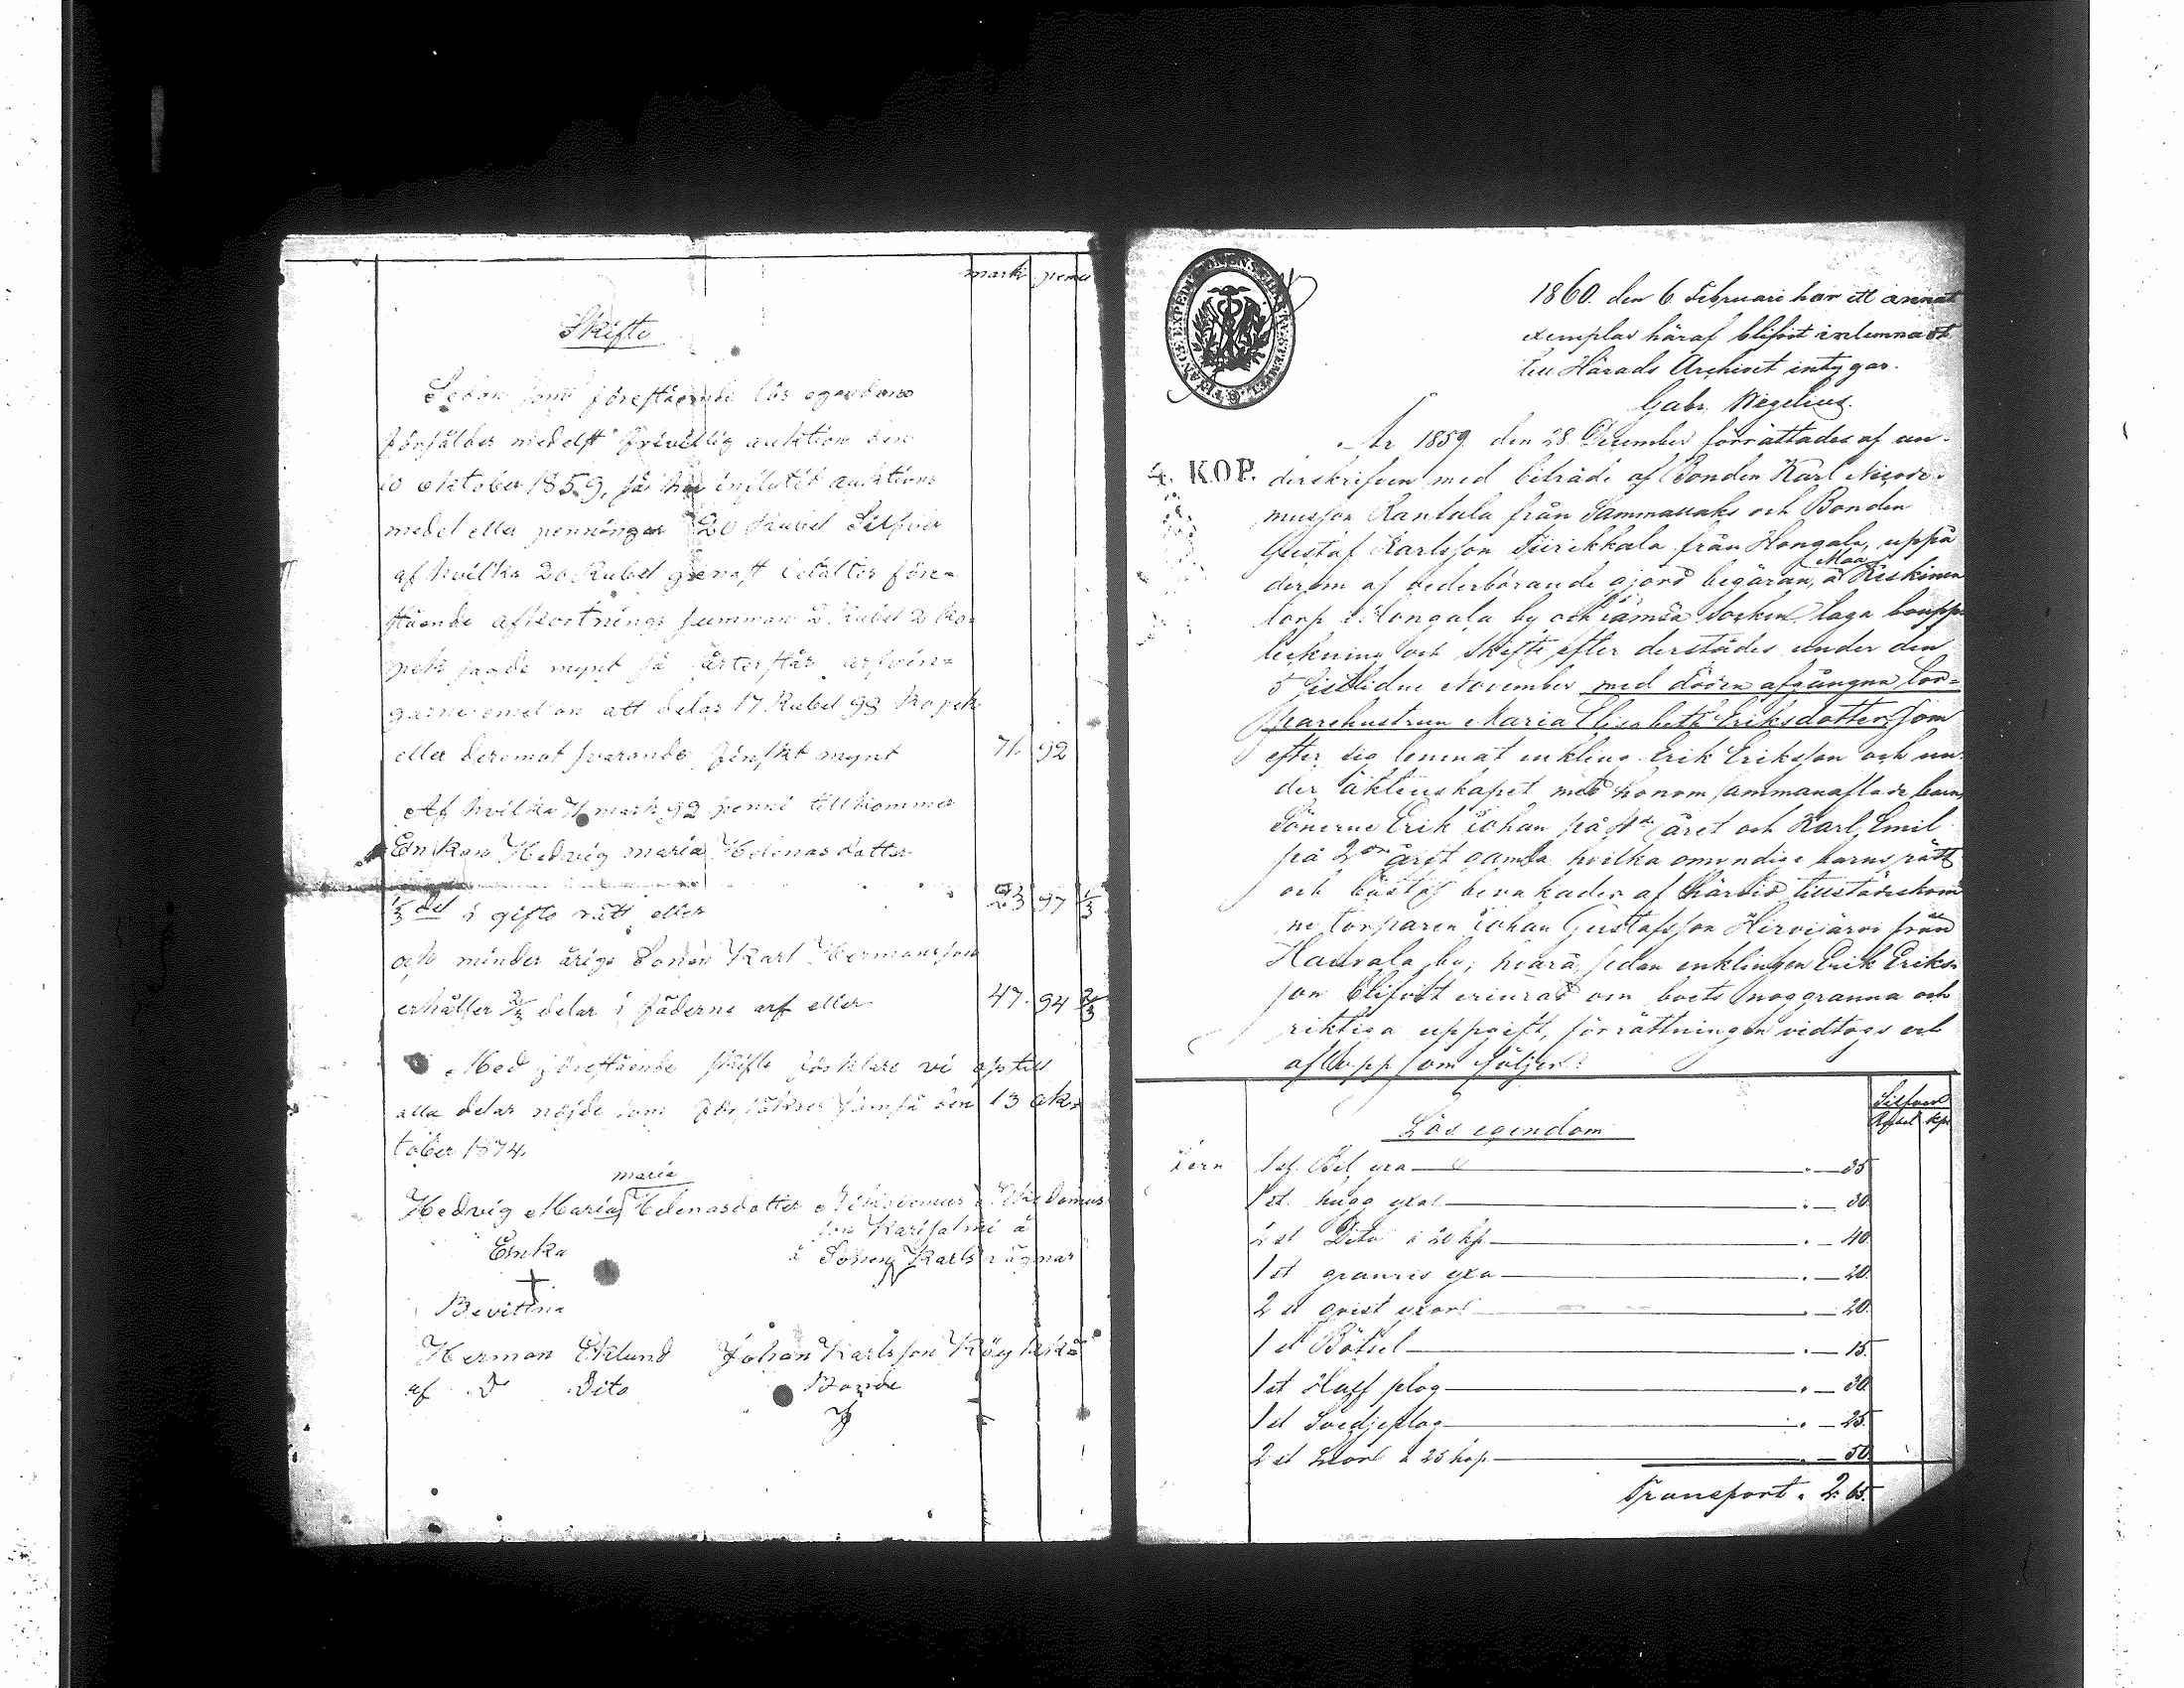 mark penni
Skifte
Sedan som föreståente lös egendom
försåldes medelst frivillig auktion den
10 oktober 1859, så har influtit auktions
medel eller penningar 20 Rubel Silfver
af hvilka 20 Rubel genast betaltes före=
stående afkortnings summan 2 Rubel 2 ko=
pek sagde mynt så återstår arfvin=
garne emellan att delas 17 Rubel 98 kopek
eller deremot svarande finskt mynt 71. 92
Af hvilka 71 mark 92 penni tillkommer
Enkan Hedvig maria Helenasdotter
1/3 del i gifto rätt eller 23 97 1/3
och minder årige Sonen Karl Hermansson
erhåller 2/3 delar i fäderne arf eller 47. 94 2/3
Med föreståente skifte förklare vi
alla delar nöjde som försäkres Jämsä den 13 ok=
tober 1874.
maria
Hedvig Maria Helenasdotter
Enka
å Sonen Karls vägnar
Bevittna
Herman Eklund Johan Karlsson
af D Dito Bonde
FINANS EXPEDITIONENS CHARTÆ STEMPEL
4. KOP.
1860. den 6 Februari har ett annat
exemplar häraf blifvit inlemnadt
till Härads Archivet intygar.
Gabr. Wegelius.
År 1859. den 28 December förrättades af un-
derskrifven med biträde af Bonden Karl Nicode-
musson Rantala från Sammallaks och Bonden
Gustaf Karlsson Tiirikkala från Hongala, uppå
Maa
derom af vederbörande gjord begäran, å Kiskinen
torp i Hongala by och Jämsä Socken laga boupp
teckning och Skifte efter derstädes under den
5 sistlidne November med döden afgångna tor=
parehustrun Maria Elisabeth Eriksdotter som
efter sig lemnat enkling Erik Eriksson och un-
der äktenskapet med honom sammanaflade barn,
Sönerne Erik Johan på 4de året och Karl Emil
på 2dra året gamla hvilka omyndige barns rätt
och bästa bevakades af härvid tillstädeskom
ne torparen Johan Gustafsson Hirvijärvi från
by; hvarå sedan enklingen Erik Eriks-
son blifvit erinrad om boets noggranna och
riktiga uppgift, förrättningen vidtogs och
aflopp som följer:
Silfver
Rubel kp.
Lös egendom
Jern 1 st. Bil yxa . — 35
1 st. hugg yxa . — 30.
2 st Dito à 20 kp. . — 40.
1 st granris yxa . — 20.
2 st qvist yxor . — 20.
1 st Bötsel . — 15.
1 st Huff plog . — 30.
1 st Svedjeplog . — 25.
2 st Lior à 25 kop. . — 50.
Transport . 2. 65.